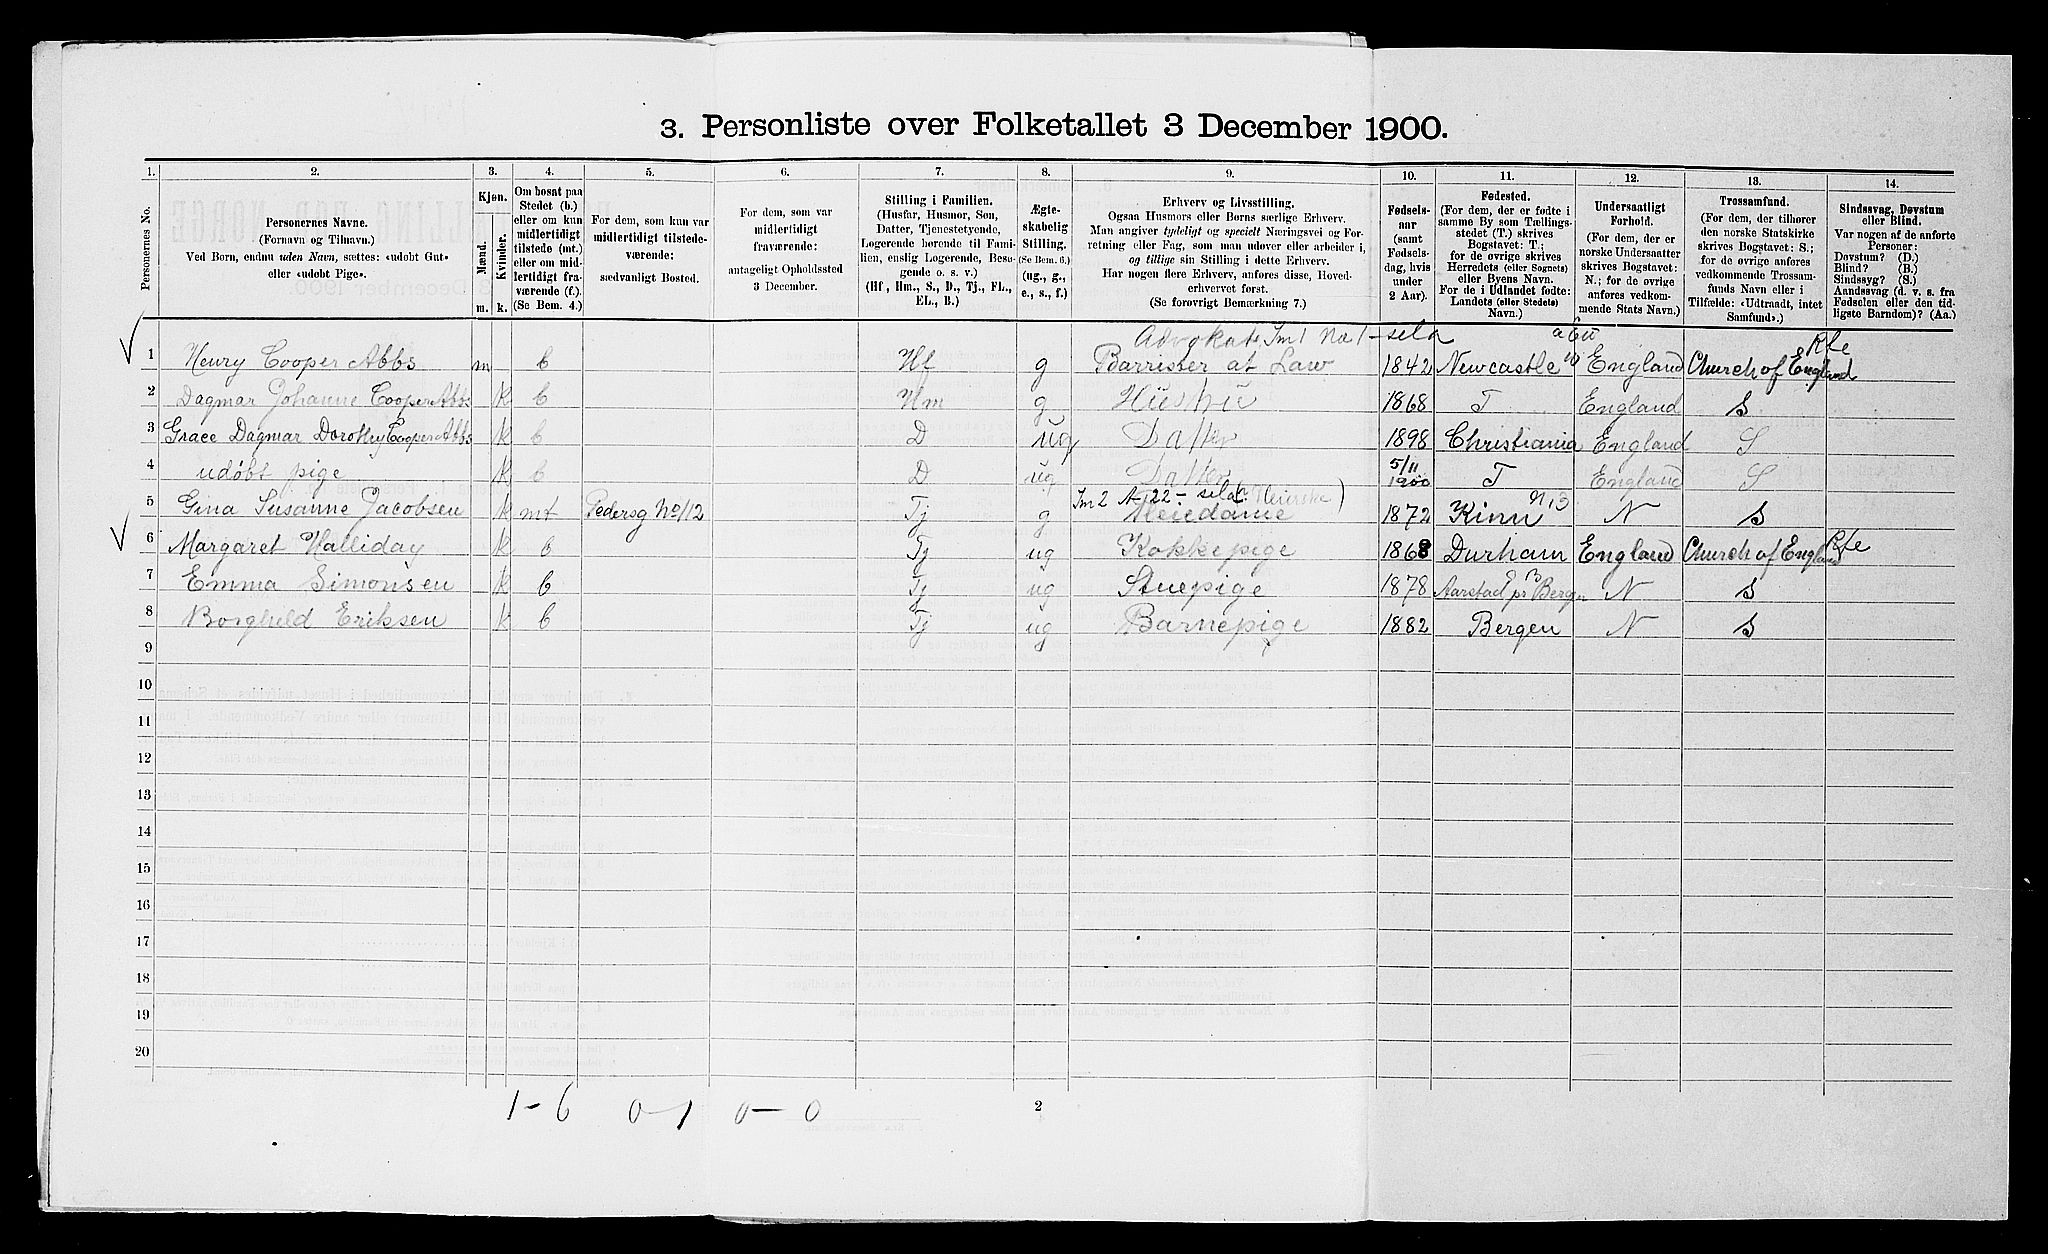 3. Personliste over Folketallet 3 December 1900.
1. 2. 3. 4. 5. 6. 7. 8. 9. 10. 11. 12. 13. 14.
Personernes No.
Personernes Navne.
(Fornavn og Tilnavn.)
Ved Børn, endnu uden Navn, sættes: «udøbt Gut»
eller «udøbt Pige».
Kjøn.
Mænd.
Kvinder.
m. k.
Om bosat paa
Stedet (b.)
eller om kun
midlertidigt
tilstede (mt.)
eller om mid-
lertidigt fra-
værende (f.)
(Se Bem. 4.)
For dem, som kun var
midlertidigt tilstede-
værende:
sædvanligt Bosted.
For dem, som var
midlertidigt
fraværende:
antageligt Opholdssted
3 December.
Stilling i Familien.
(Husfar, Husmor, Søn,
Datter, Tjenestetyende,
Logerende hørende til Fami-
lien, enslig Logerende, Besø-
gende o. s. v.)
(Hf, Hm., S., D., Tj., FL.,
EL., B.)
Ægte-
skabelig
Stilling.
(Se Bem. 6.)
(ug., g.,
e., s., f.)
Erhverv og Livsstilling.
Ogsaa Husmors eller Børns særlige Erhverv.
Man angiver tydeligt og specielt Næringsvei og For-
retning eller Fag, som man udøver eller arbeider i,
og tillige sin Stilling i dette Erhverv.
Har nogen flere Erhverv, anføres disse, Hoved-
erhvervet først.
(Se forøvrigt Bemærkning 7.)
Fødsels-
aar
(samt
Fødsels-
dag, hvis
under
2 Aar).
Fødested.
(For dem, der er fødte i
samme By som Tællings-
stedet (T.) skrives
Bogstavet: T.;
for de øvrige skrives
Herredets (eller Sognets)
eller Byens Navn.
For de i Udlandet fødte:
Landets (eller Stedets)
Navn.)
Undersaatligt
Forhold.
(For dem, der er
norske Undersaatter
skrives Bogstavet:
N.; for de øvrige
anføres vedkom-
mende Stats Navn.)
Trossamfund.
(For dem, der tilhører
den norske Statskirke
skrives Bogstavet: S.;
for de øvrige anføres
vedkommende Trossam-
funds Navn eller i
Tilfælde: «Udtraadt, intet
Samfund».)
Sindssvag, Døvstum
eller Blind.
Var nogen af de anførte
Personer:
Døvstum? (D.)
Blind? (B.)
Sindssyg? (S.)
Aandssvag (d. v. s. fra
Fødselen eller den tid-
ligste Barndom)? (Aa.)
Advokat
1 Henry Cooper Abbs m b Hf g Barrister at Law 1842 Newcastle England Church of England
2 Dagmar Johanne Cooper Abbs k b Hm g Hustru 1868 T England S
3 Grace Dagmar Dorothy Cooper Abbs k b D ug Datter 1898 Christiania England S
4 udøbt pige k b D ug Datter 5/11 1900 T England S
5 Gina Susanne Jacobsen k mt Pedersg No 12 Tj g Heiedame 1872 Kinn N S
6 Margaret Halliday k b Tj ug Kokkepige 1868 Durham England Church of England
7 Emma Simonsen k b Tj ug Stuepige 1878 Aarstad pr Bergen N S
8 Borghild Eriksen k b Tj ug Barnepige 1882 Bergen N S
9
10
11
12
13
14
15
16
17
18
19
20
1-6 0-1 0-0
2